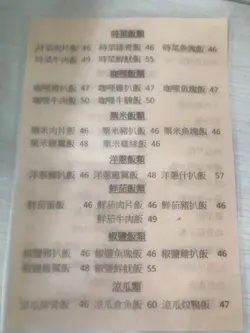 時菜飯類
時菜肉片飯 46 時菜排骨飯 46 時菜魚塊飯 46
時菜牛肉飯 49 時菜鮮魷飯 55
咖喱飯類
咖喱豬扒飯 46 咖喱雞扒飯 46 咖喱魚塊飯 46
咖喱牛肉飯 50 咖喱牛腩飯 50
粟米飯類
粟米肉片飯 46 粟米豬扒飯 46 粟米魚塊飯 46
粟米雞翼飯 48 粟米雞絲飯 46
洋蔥飯類
洋蔥豬扒飯 46 洋蔥雞翼飯 48 洋蔥什扒飯 57
鮮茄飯類
鮮茄蛋飯 46 鮮茄肉片飯 46 鮮茄豬扒飯 46
鮮茄牛肉飯 49
椒鹽飯類
椒鹽豬扒飯 46 椒鹽魚塊飯 46 椒鹽雞扒飯 46
椒鹽雞翼飯 48 椒鹽鮮魷飯 55
涼瓜類
涼瓜排骨飯 46 涼瓜斑魚飯 60 涼瓜火鴨飯 47